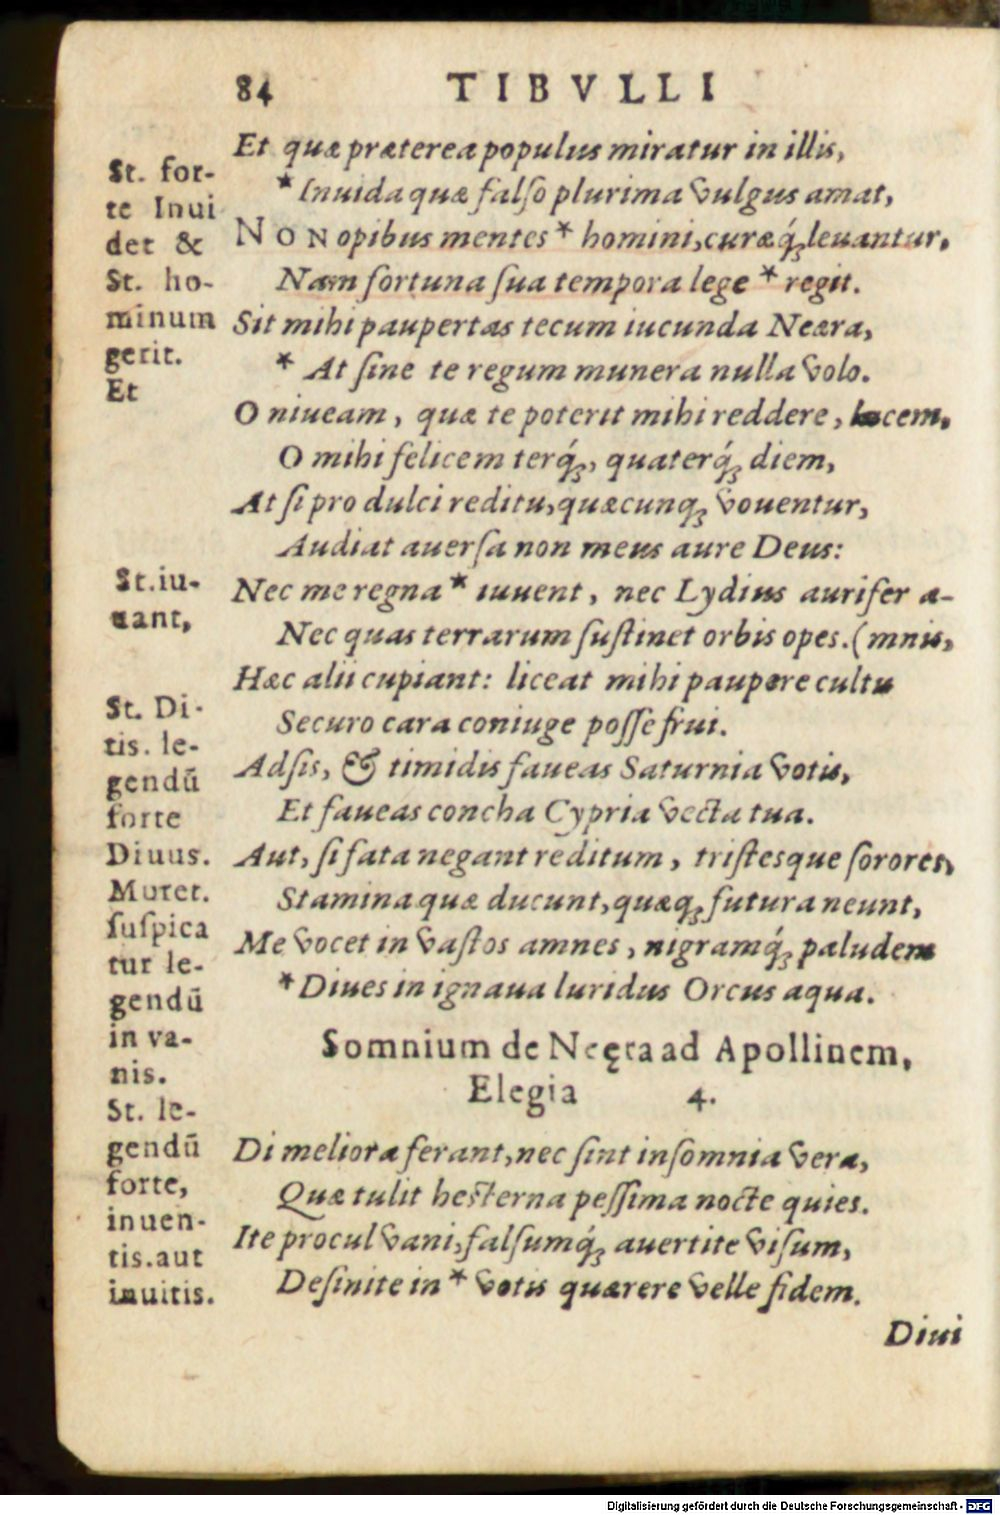 84 TIBVLLI
Et quæ præterea populus miratur in illis,
* Inuida quæ falſo plurima vulgus amat,
NON opibus mentes * homini, curæq́ꝫ leuantur,
Nam fortuna ſua tempora lege * regit.
Sit mihi paupertas tecum iucunda Neæra,
* At ſine te regum munera nulla volo.
O niueam, quæ te poterit mihi reddere, lucem,
O mihi felicem terq́ꝫ, quaterq́ꝫ diem,
At ſi pro dulci reditu, quæcunqꝫ vouentur,
Audiat auerſa non meus aure Deus:
Nec me regna * iuuent, nec Lydius aurifer a-
Nec quas terrarum ſuſtinet orbis opes. (mnis,
Hæc alii cupiant: liceat mihi paupere cultu
Securo cara coniuge poſſe frui.
Adſis, & timidis faueas Saturnia votis,
Et faueas concha Cypria vecta tua.
Aut, ſi fata negant reditum, triſtesque ſorores,
Stamina quæ ducunt, quæqꝫ futura neunt,
Me vocet in vaſtos amnes, nigramq́ꝫ paludem
* Diues in ignaua luridus Orcus aqua.
Somnium de Neęra ad Apollinem,
Elegia 4.
Di meliora ferant, nec ſint inſomnia vera,
Quæ tulit heſterna peſſima nocte quies.
Ite procul vani, falſumq́ꝫ auertite viſum,
Deſinite in * votis quærere velle fidem.
Diui
St. for-
te Inui
det &
St. ho-
minum
gerit.
Et
St. iu-
uant,
St. Di-
tis. le-
gendũ
forte
Diuus.
Muret.
ſuſpica
tur le-
gendũ
in va-
nis.
St. le-
gendũ
forte,
inuen-
tis. aut
inuitis.
Digitalisierung gefördert durch die Deutsche Forschungsgemeinschaft - DFG